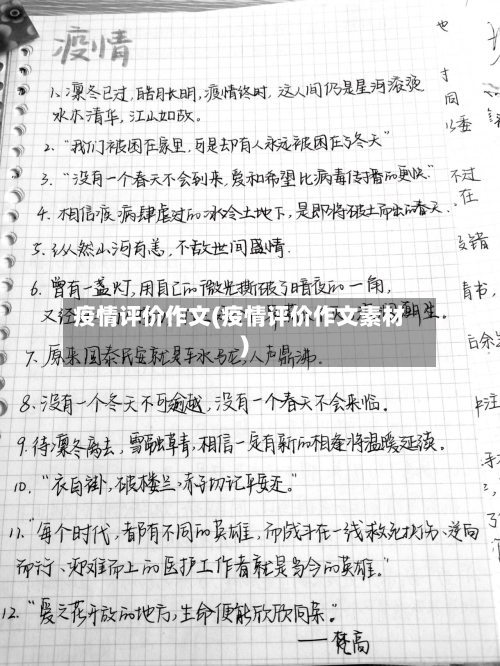 疫情
1、凛冬已过,皓月长明,疫情终时,这人间仍是星河滚烫
水木清华,江山如故。
2、"我们被困在家里,可是却有人永远被困在了冬天"
3、"没有一个春天不会到来,爱和希望比病毒传播的更快"
4、相信疫病肆虐过的冰冷土地下,是即将破土而出的春天.
5、纵然山河有恙,不敌世间盛情.
6、曾有一盏灯,用自己的微光撕破了暗夜的一角,
又经
生.
疫情评价作文(疫情评价作文素材
)
7、原来国泰民安就是车水马龙,人声鼎沸.
8、没有一个冬天不可逾越,没有一个春天不会来临.
9、待凛冬离去,雪融草青,相信一定有新的相逢将温暖延续。
10、"衣白褂,破楼兰,赤子切记平安还。"
11、"每个时代,都有不同的英雄,而战斗在一线救死扶伤、逆向
而行、迎难而上的医护工作者就是当今的英雄。"
12、"爱之花开放的地方,生命便能欣欣向荣。"
——梵高
也
寸
同
以委
不过
在
青书,
白余